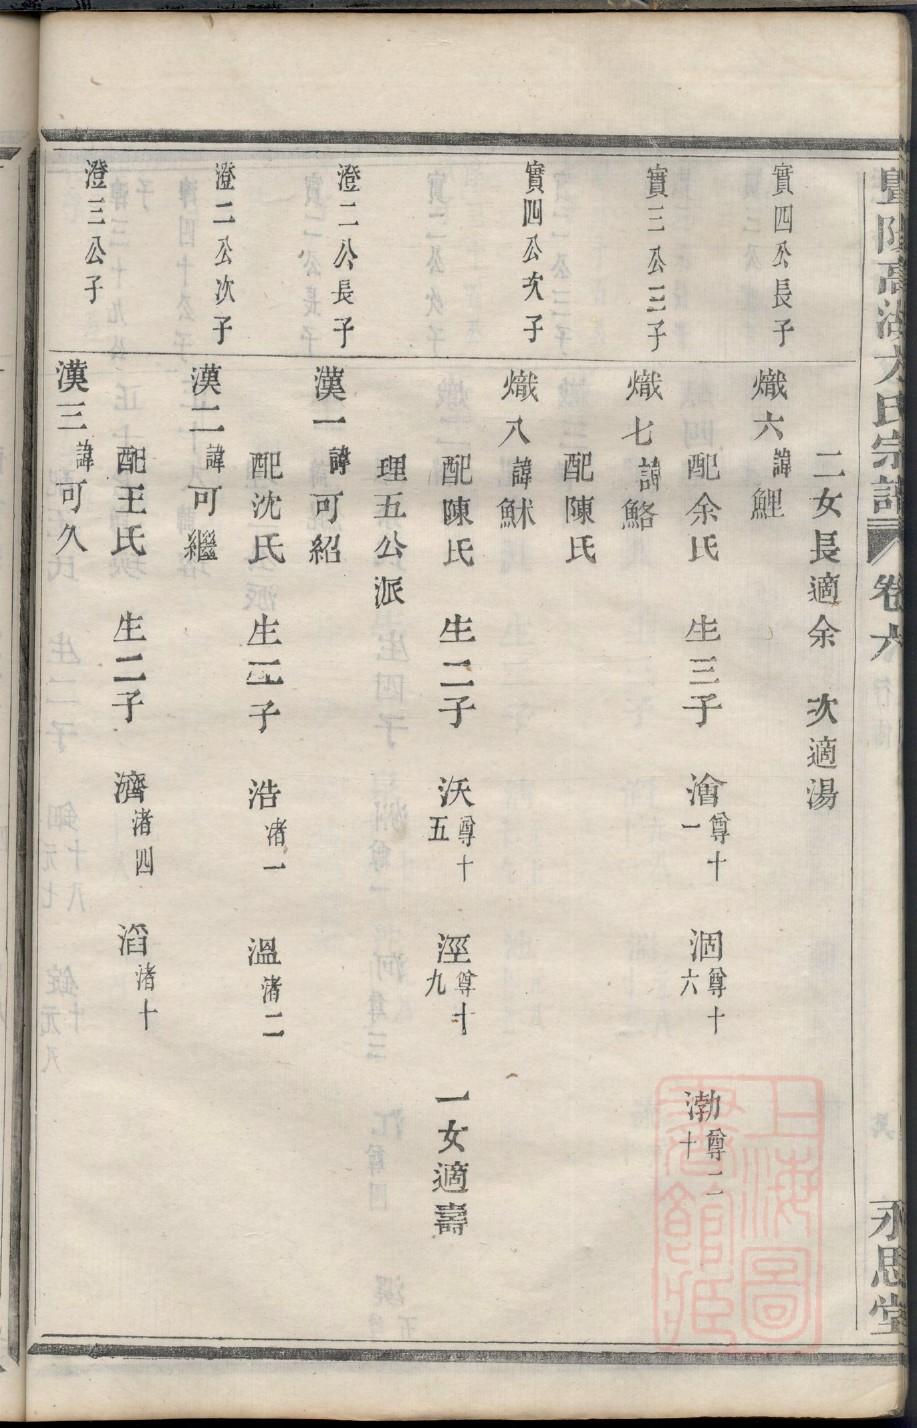 暨陽高湖方氏宗譜 卷六 永思堂
二女長適余 次適湯
實四公長子 熾六諱鯉
配余氏 生三子 澮尊十一 涸尊十六 渤尊二十
實三公三子 熾七諱鮥
配陳氏
實四公次子 熾八諱鮴
配陳氏 生二子 沃尊十五 涇尊十九 一女適壽
理五公派
澄二公長子 漢一諱可紹
配沈氏 生二子 浩渚一 溫渚二
澄二公次子 漢二諱可繼
配王氏 生二子 濟渚四 滔渚十
澄三公子 漢三諱可久
上海圖書館藏